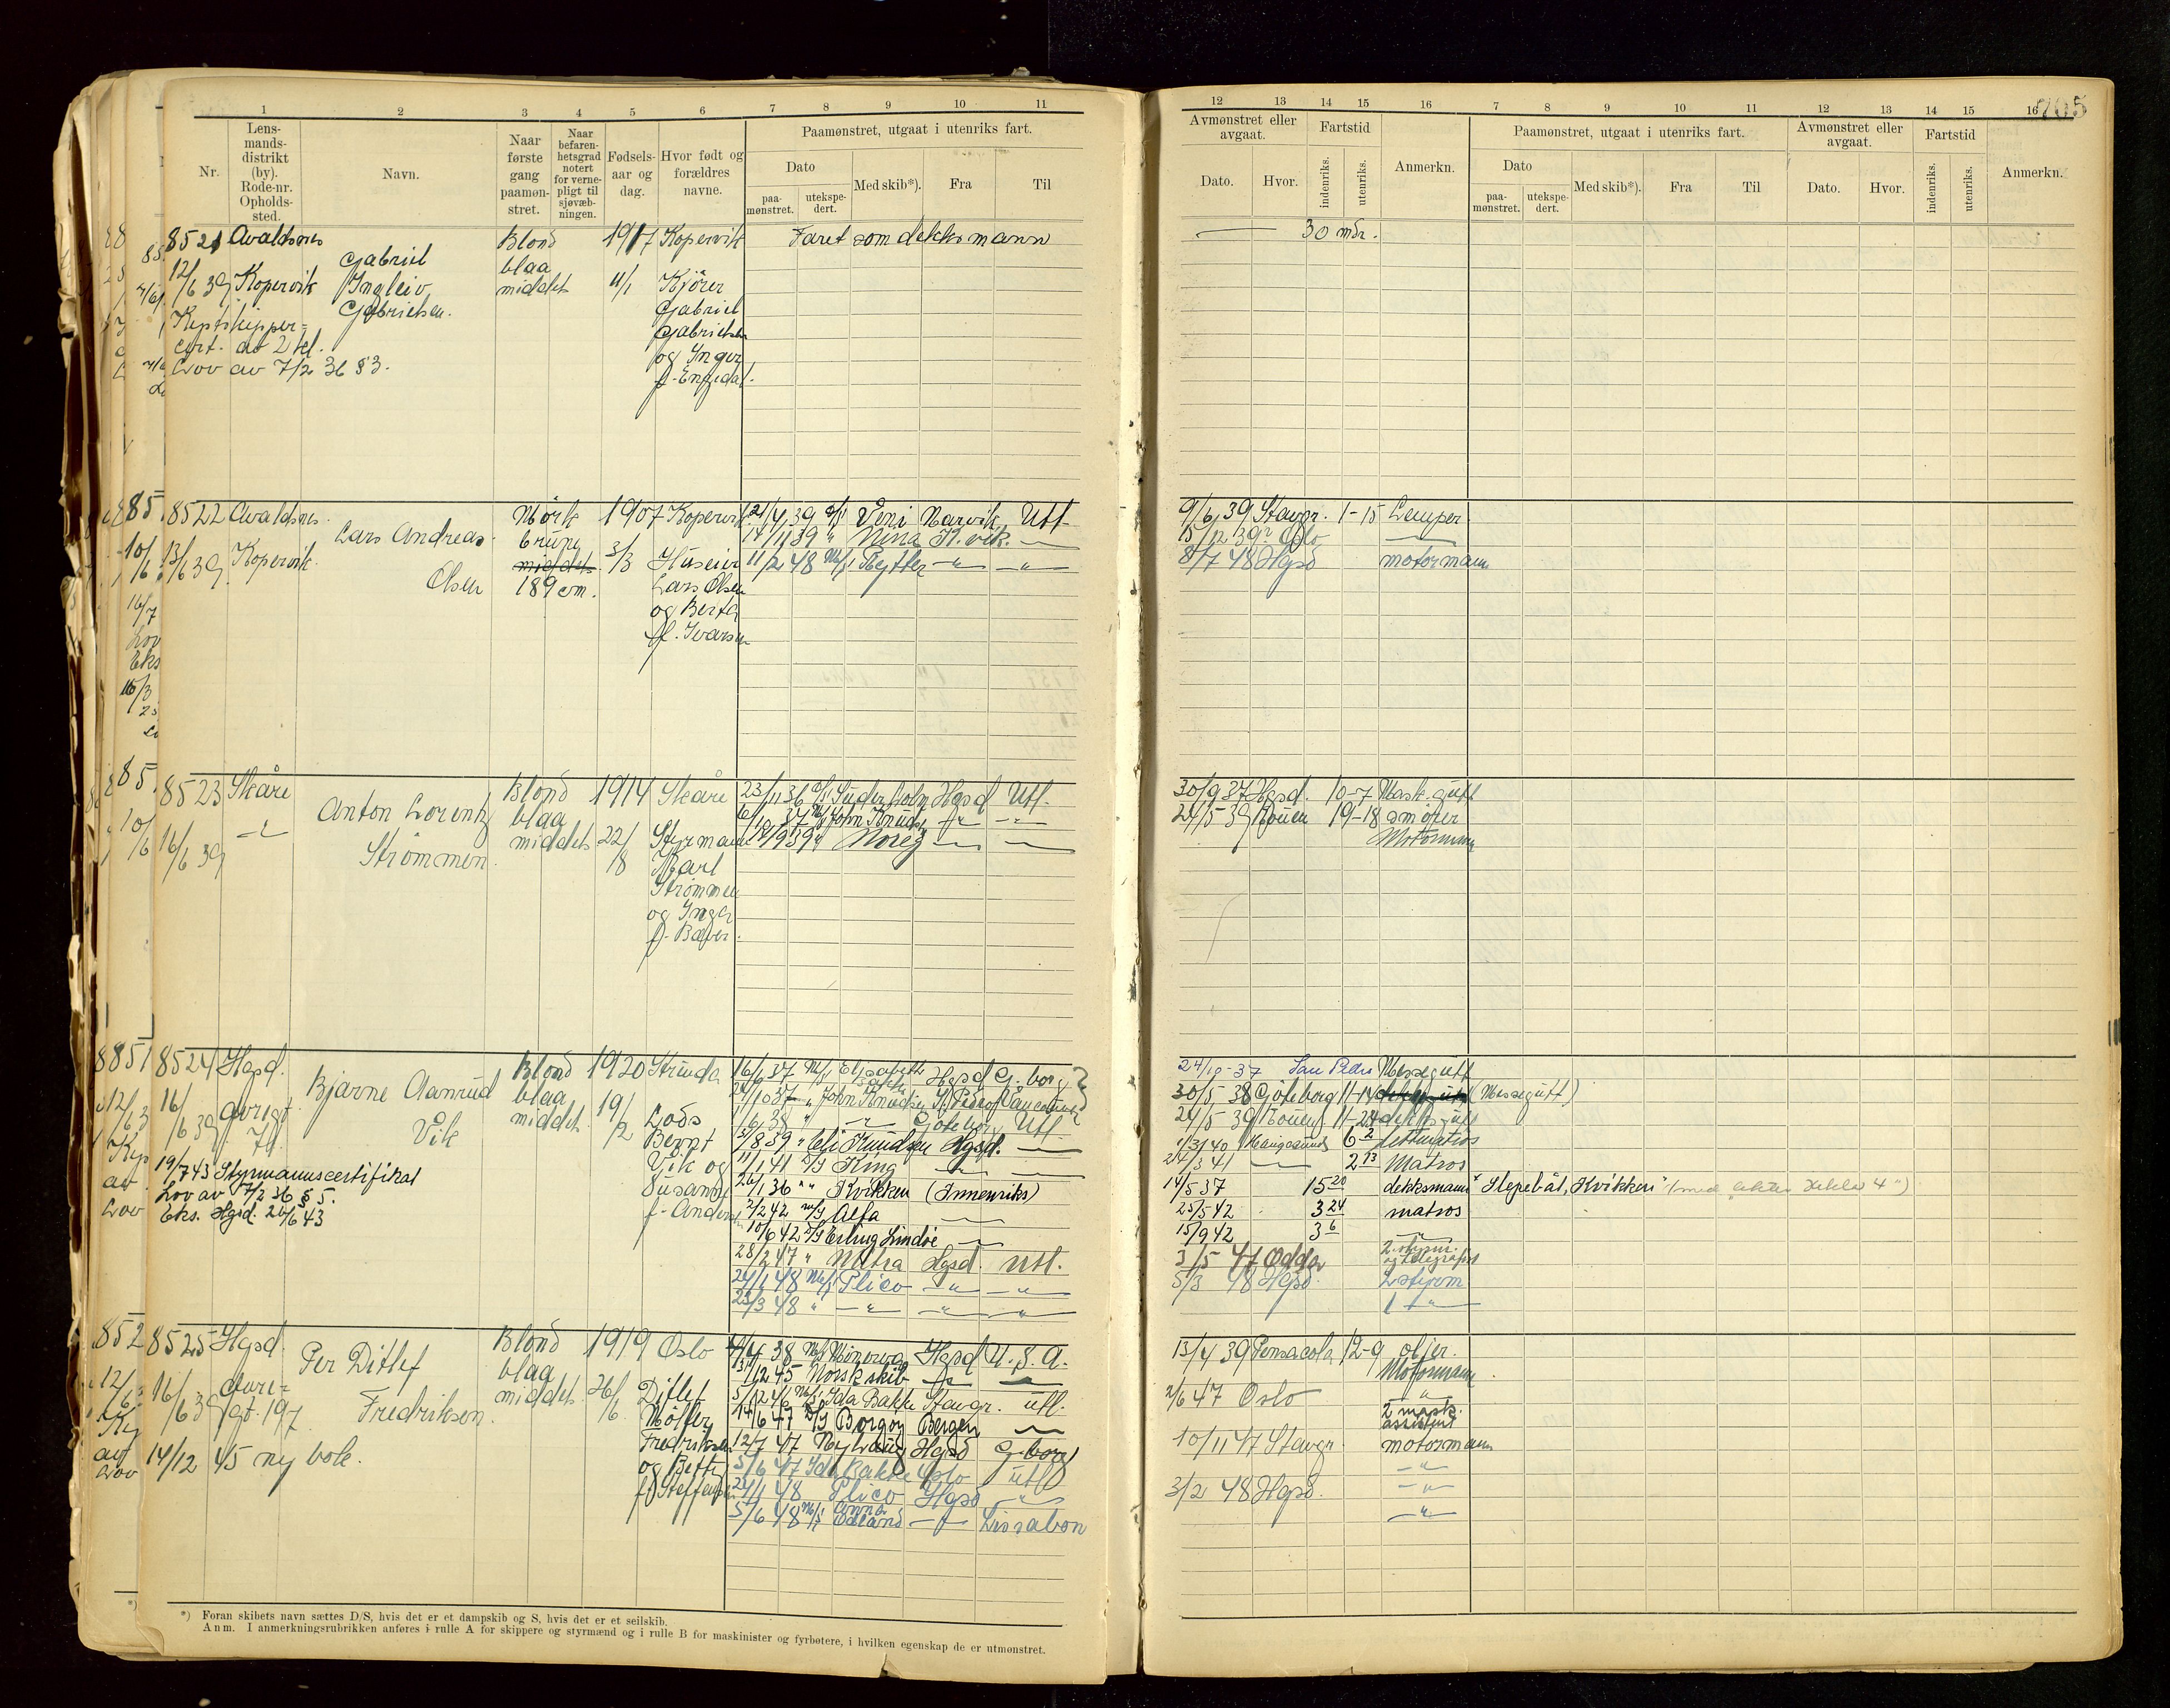 1 2 3 4 5 6 7 8 9 10 11
Nr.
Lens-
mands-
distrikt
(by).
Rode-nr.
Opholds-
sted.
Navn.
Naar
første
gang
paamøn-
stret.
Naar
befaren-
hetsgrad
notert
for verne-
pligt til
sjøvæb-
ningen.
Fødsels-
aar og
dag.
Hvor født og
forældres
navne.
Paamønstret, utgaat i utenriks fart.
Dato
paa-
mønstret.
utekspe-
dert.
Med skib*).
Fra
Til
12 13 14 15 16 7 8 9 10 11 12 13 14 15 16
705
Avmønstret eller
avgaat.
Dato. Hvor.
Fartstid
indenriks.
utenriks.
Anmerkn.
Paamønstret, utgaat i utenriks fart.
Dato
paa-
mønstret.
utekspe-
dert.
Med skib*).
Fra
Til
Avmønstret eller
avgaat.
Dato. Hvor.
Fartstid
indenriks.
utenriks.
Anmerkn.
8521 Avaldsnes Blond 1917 Kopervik Faret som dekksmann 30 mdr.
Gabriel blaa
12/6 39 Kopervik Ingleiv middels 11/1 Kjörer
Gabrielsen. Gabriel
Kystskipper- Gabrielsen
cert. av 2 kl. og Inger
Lov av 7/2 36 § 3. f. Engedal.
8522 Avaldsnes. Mörk 1907 Kopervik 21/4 39 d/s Veni Narvik Utl. 9/6 39 Stavgr. 1-15 Lemper
Lars Andreas brune 14/11 39 " Nina K.vik. — 15/12 39 Oslo —
13/6 39 Kopervik. middels 3/3 Huseier 11/2 48 M/s Rytter —"— —"— 8/7 48 Hgsd motormann
Olsen 189 cm. Lars Olsen
og Berta
f. Ivarsen
8523 Skåre Blond 1914 Skåre 23/11 36 Hgsd Utl. 30/9 37 Hgsd. 10-7 Mask. gutt
Anton Lorentz blaa 37 M/s John Knudsen —"— —"— 24/5 39 Rouen 19-18 smörer
16/6 39 —"— Strømmen. middels 22/8 Styrmann 39 " Noreg — — Motormann
Karl
Strömmen
og Inger
f. Bøver.
8524 Hgsd. Blond 1920 Strinda 16/1 37 M/s Elisabeth Bakke Hgsd G.borg 24/10-37 San Pedro Messegutt
Bjarne Aamrud blaa 24/10 37 " John Knudsen S. Pedro Vancouver 30/5 38 Göteborg (Messegutt)
16/6 39 Vik middels. 19/2 Lods 1/6 38 " —"— Göteborg Utl. 24/5 39 Rouen 11-24 dekksgutt
Bernt 39 " Elie Knudsen Hgsd. — 40 Haugesund 6 2 lettmatros
Vik og 11/1 41 D/S King — — 24/3 41 — 2 13 Matros
19/7 43 Styrmannscertifikat Susanne 26/1 36 " " Kvikken (Innenriks) 14/5 37 15 20 dekksmann Slepebåt "Kvikken"
Lov av 7/2 36 § 5. f. Anderson 2/2 42 m/s Alfa — 25/5 42 3 24 matros
Eks. Hgsd. 26/6 43 10/6 42 D/S Erling Lindöe — 15/9 42 3 6 —"—
28/2 47 " Hgsd. Utl. 3/5 47 Odda 2. styrm. og telegrafist
24/1 48 M/s Plico —"— —"— 5/3 48 Hgsd. 2 styrm
23/3 48 " —"— —"— —"— 1 —"—
8525 Hgsd. Blond 1919 Oslo 38 M/s Minerva Hgsd U.S.A. 13/4 39 Pensacola 12-9 oljer.
Per Ditlef blaa 13/12 45 Norsk skib —"— — Motormann.
16/6 39 197 Fredriksen. middels 26/6 Ditlef 5/12 46 M/s Ida Bakke Stavgr. utl. 2/6 47 Oslo —"—
Möller 14/6 47 D/S Borgøy Bergen — 2 mask. assistent
Fredriksen 12/7 47 Nylaug Hgsd G.borg 10/11 47 Stavgr. motormann
14/12 45 ny bok. og Betty 5/6 47 Ida Bakke Oslo utl —"—
f. Steffensen 24/1 48 Plico Hgsd —"— 3/2 48 Hgsd. —"—
5/6 48 M/s Anna Odland —"— Lissabon —"—
*) Foran skibets navn sættes D/S, hvis det er et dampskib og S, hvis det er et seilskib.
Anm. I anmerkningsrubrikken anføres i rulle A for skippere og styrmænd og i rulle B for maskinister og fyrbøtere, i hvilken egenskap de er utmønstret.